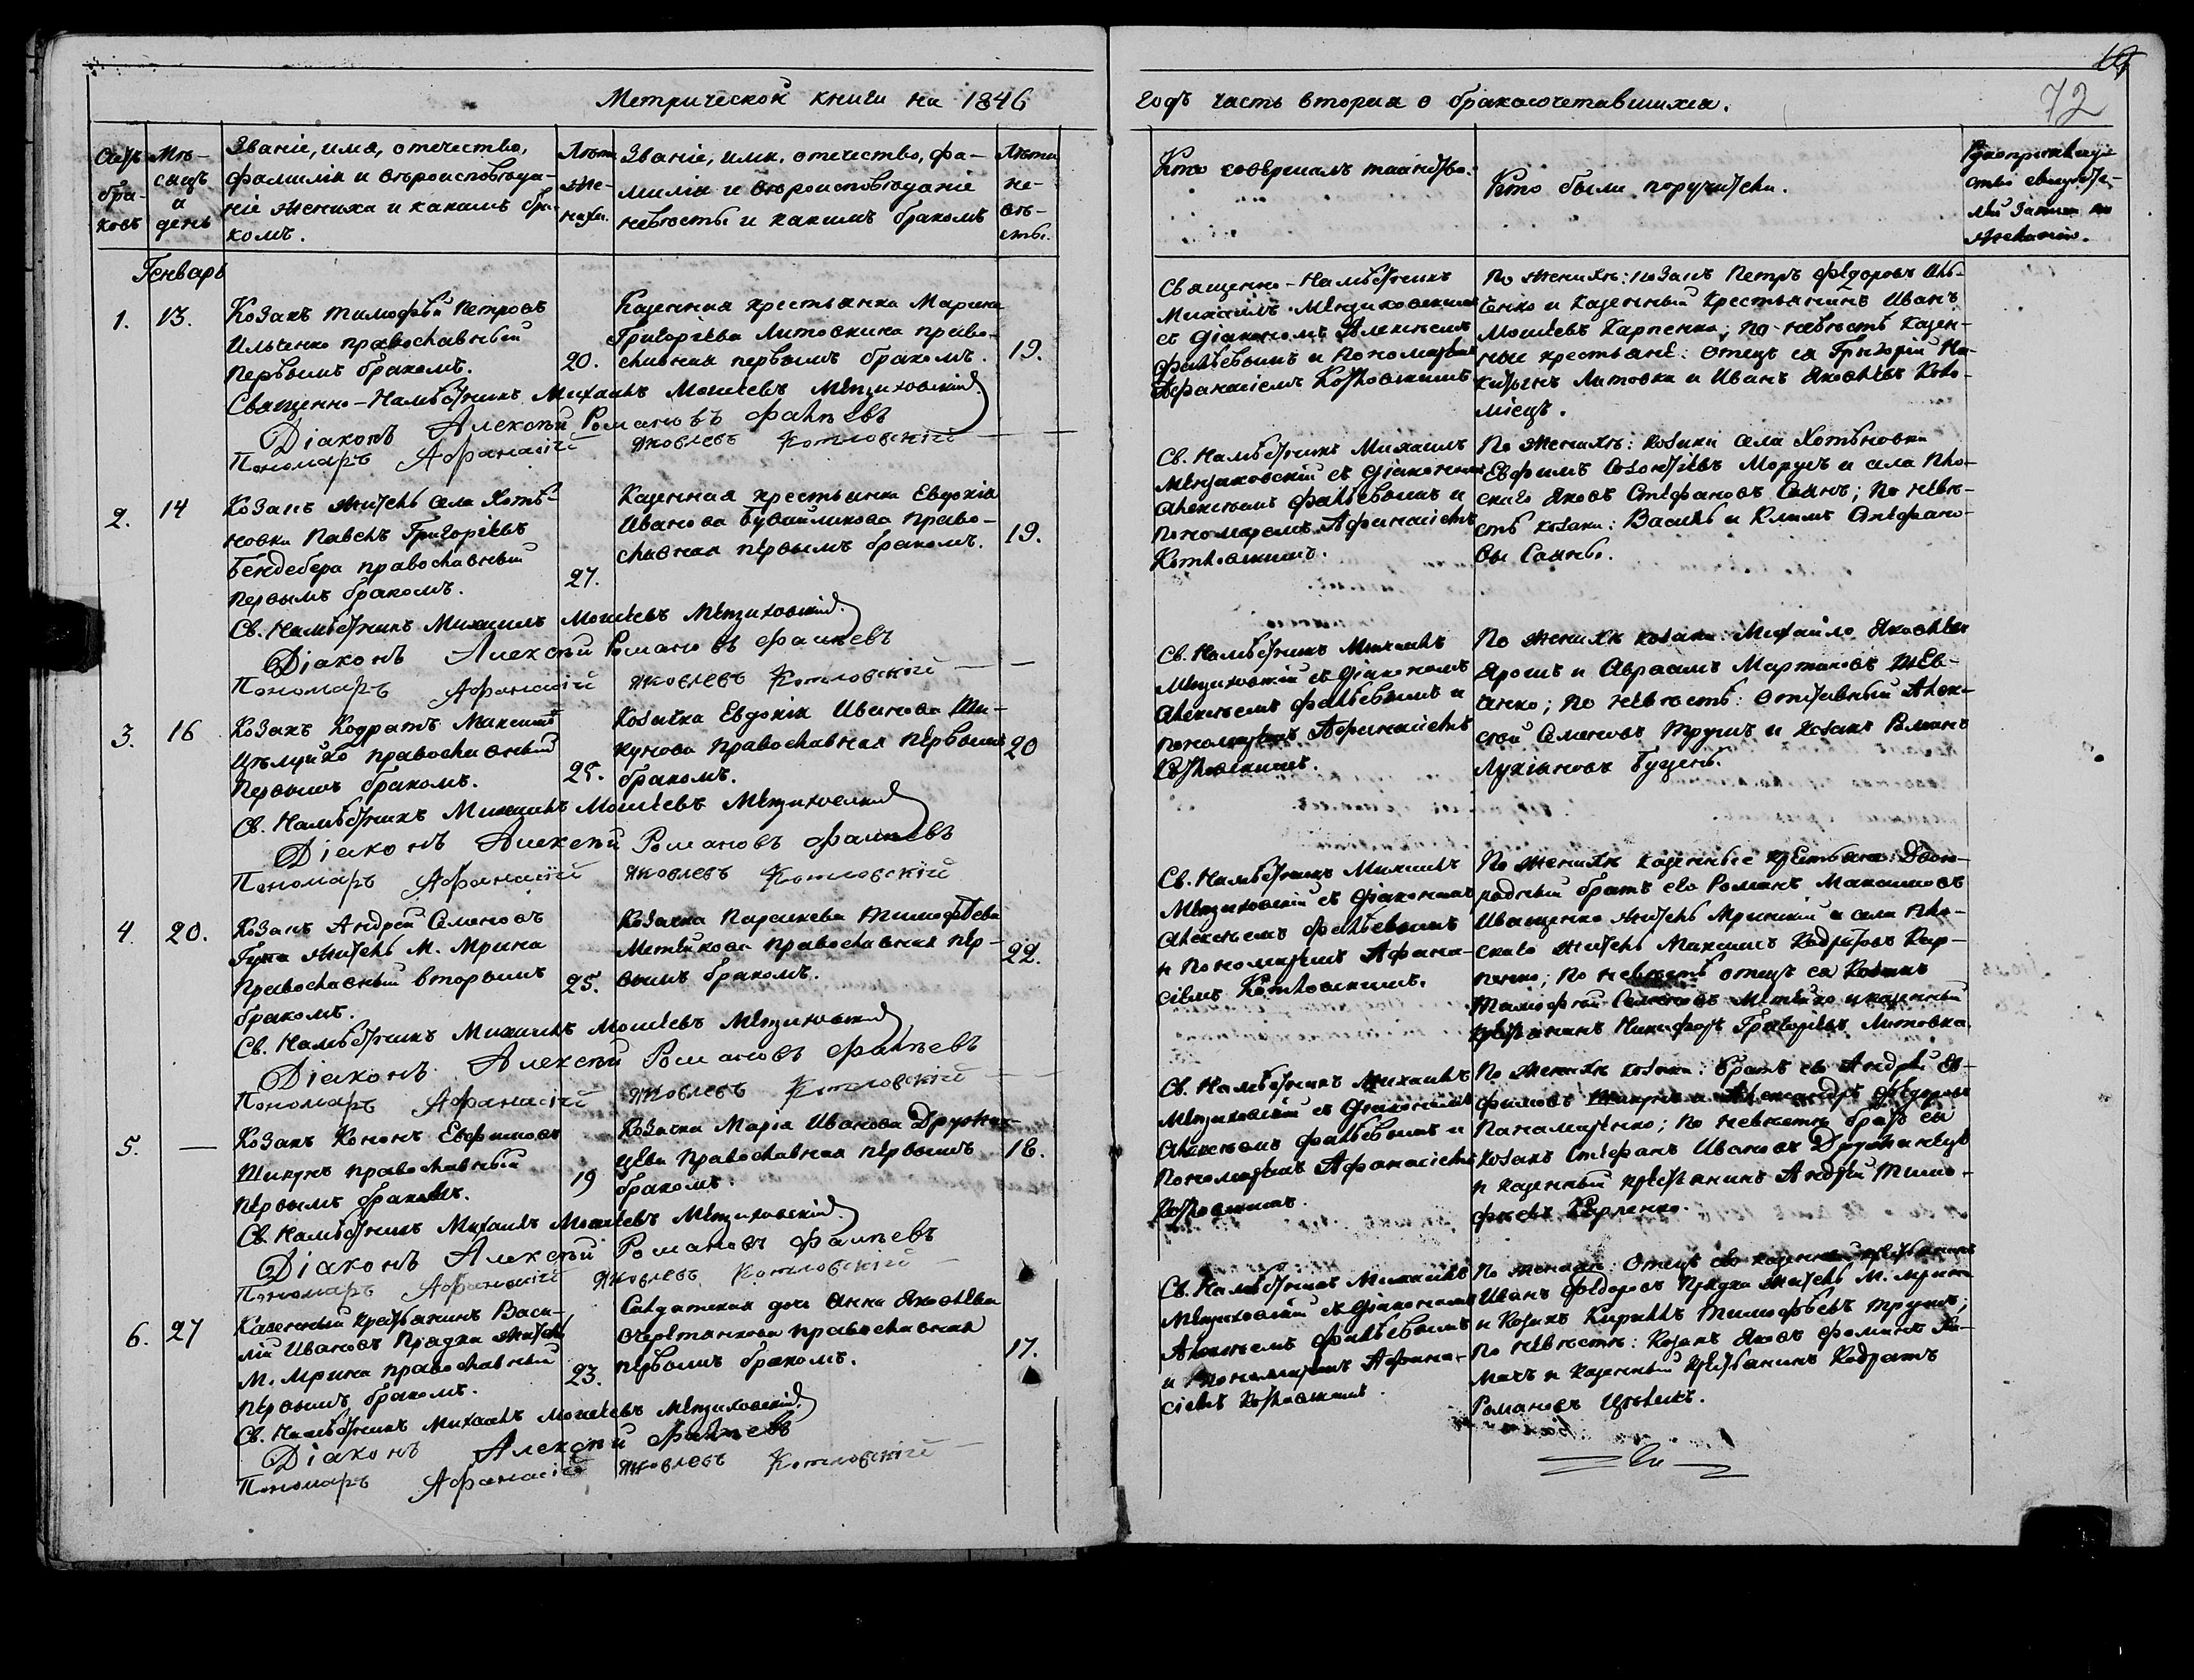 Метрической книги на 1846
годъ часть вторая о бракосочетавшихся.
72
Счетъ браковъ
Мѣсяцъ и день
Званіе, имя, отечество,
фамилія и вѣроисповѣда-
ніе жениха и какимъ бра-
комъ.
Лѣта жениха.
Званіе, имя, отечество, фа-
милія и вѣроисповѣданіе
невѣсты и какимъ бракомъ
Лѣта не-
вѣ-
сты.
Кто совершалъ таинство.
Кто были поручители.
Генварь
1.
13.
Козакъ Тимофѣй Петровъ
Ильченко православный
первымъ бракомъ.
20.
Казенная крестьянка Марина
Григоріева Литовкина право-
славная первымъ бракомъ.
19.
Священно-Намѣстникъ
Михаилъ
съ Діакономъ Алексѣемъ
Фалѣевымъ и Пономаремъ
Афанасіемъ Котловскимъ
По женихѣ: козакъ Петръ Федоровъ Иль-
ченко и казенный крестьянинъ Иванъ
Моисеевъ Карпенко; по невѣстѣ казен-
ные крестьяне: Отецъ ея Григорій Ни-
китинъ Литовка и Иванъ Яковлевъ Коло-
міецъ.
Священно-Намѣстникъ Михаилъ Моисеевъ
Діаконъ Алексѣй Романовъ Фалѣевъ
Пономаръ Афанасій Яковлевъ Котловскій
2.
14
Козакъ житель села Хотѣ-
новки Павелъ Григоріевъ
Бендебера православный
первымъ бракомъ.
27.
Казенная крестьянка Евдокія
Иванова право-
славная первымъ бракомъ.
19.
Св. Намѣстникъ Михаилъ
съ Діакономъ
Алексѣемъ Фалѣевымъ и
Пономаремъ Афанасіемъ
Котловскимъ.
По женихѣ: козаки села Хотѣновки
Евфимъ Моругъ и села Пло-
скаго Яковъ Стефановъ Саянъ; По невѣ-
стѣ козаки: Василь и Климъ Стефано-
вы Саяны.
Св. Намѣстникъ Михаилъ Моисеевъ
Діаконъ Алексѣй Романовъ Фалѣевъ
Пономаръ Афанасій Яковлевъ Котловскій
3.
16
Козакъ Кодратъ Максимовъ
Цѣлуйко православный
первымъ бракомъ.
25.
Козачка Евдокія Иванова Ши-
кунова православная первымъ
бракомъ.
20
Св. Намѣстникъ Михаилъ
съ Діакономъ
Алексѣемъ Фалѣевымъ и
Пономаремъ Афанасіемъ
Котловскимъ.
По женихѣ козаки: Михайло Яковлевъ
Ярошъ и Авраамъ Мартиновъ Шев-
ченко; По невѣстѣ: отставный Алек-
сѣй Семеновъ Трушъ и козакъ Романъ
Лукіановъ Буценъ.
Св. Намѣстникъ Михаилъ Моисеевъ
Діаконъ Алексѣй Романовъ Фалѣевъ
Пономаръ Афанасій Яковлевъ Котловскій
4.
20.
Козакъ Андрей Семеновъ
житель М. Мрина
православный вторымъ
бракомъ.
25.
Козачка Параскева Тимофѣева
православная пер-
вымъ бракомъ.
22.
Св. Намѣстникъ Михаилъ
съ Діакономъ
Алексѣемъ Фалѣевымъ
и Пономаремъ Афана-
сіемъ Котловскимъ.
По женихѣ казенные крестьяне: Двою-
родный братъ его Романъ Максимовъ
Иващенко житель Мринскій и села Пло-
скаго житель Максимъ Кодратовъ Кар-
пенко; По невѣстѣ отецъ ея козакъ
Тимофей Семеновъ и казенный
крестьянинъ Никифоръ Григоріевъ Литовка.
Св. Намѣстникъ Михаилъ Моисеевъ
Діаконъ Алексѣй Романовъ Фалѣевъ
Пономаръ Афанасій Яковлевъ Котловскій
5.
—
Козакъ Кононъ Евфимовъ
Шикунъ православный
первымъ бракомъ.
19
Козачка Марія Иванова Дружин-
цева православная первымъ
бракомъ.
18.
Св. Намѣстникъ Михаилъ
съ Діакономъ
Алексѣемъ Фалѣевымъ и
Пономаремъ Афанасіемъ
Котловскимъ.
По женихѣ козаки: братъ его Андрей Ев-
фимовъ Шикунъ и Александръ Федоровъ
Панамаренко; По невѣстѣ братъ ея
козакъ Стефанъ Ивановъ Дружинецъ
и казенный крестьянинъ Андрей Тимо-
фѣевъ Карпенко.
Св. Намѣстникъ Михаилъ Моисеевъ
Діаконъ Алексѣй Романовъ Фалѣевъ
Пономаръ Афанасій Яковлевъ Котловскій
6.
27
Казенный крестьянинъ Васи-
лій Ивановъ Прядка житель
М. Мрина православный
первымъ бракомъ.
23.
Салдатская дочь Анна Яковлева
православная
первымъ бракомъ.
17.
Св. Намѣстникъ Михаилъ
съ Діакономъ
Алексѣемъ Фалѣевымъ
и Пономаремъ Афана-
сіемъ Котловскимъ.
По женихѣ: Отецъ его казенный крестьянинъ
Иванъ Федоровъ Прядка житель М. Мрина
и козакъ Кирилъ Тимофѣевъ Трушъ;
По невѣстѣ: Козакъ Яковъ Фоминъ
и казенный крестьянинъ Кодратъ
Романовъ
Св. Намѣстникъ Михаилъ Моисеевъ
Діаконъ Алексѣй Фалѣевъ
Пономаръ Афанасій Яковлевъ Котловскій